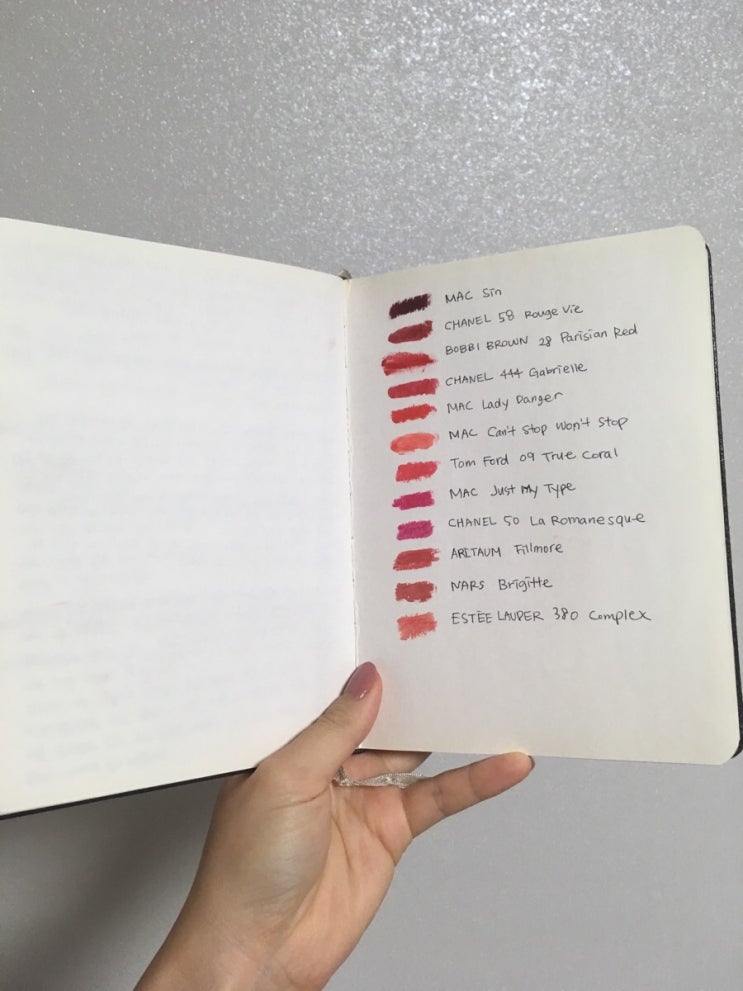 MAC Sin
CHANEL 58 Rouge Vie
BOBBI BROWN 28 Parisian Red
CHANEL 444 Gabrielle
MAC Lady Danger
MAC Can't Stop Won't Stop
Tom Ford 09 True Coral
MAC Just My Type
CHANEL 50 La Romanesque
ARITAUM Fillmore
NARS Brigitte
ESTĒE LAUDER 380 Complex